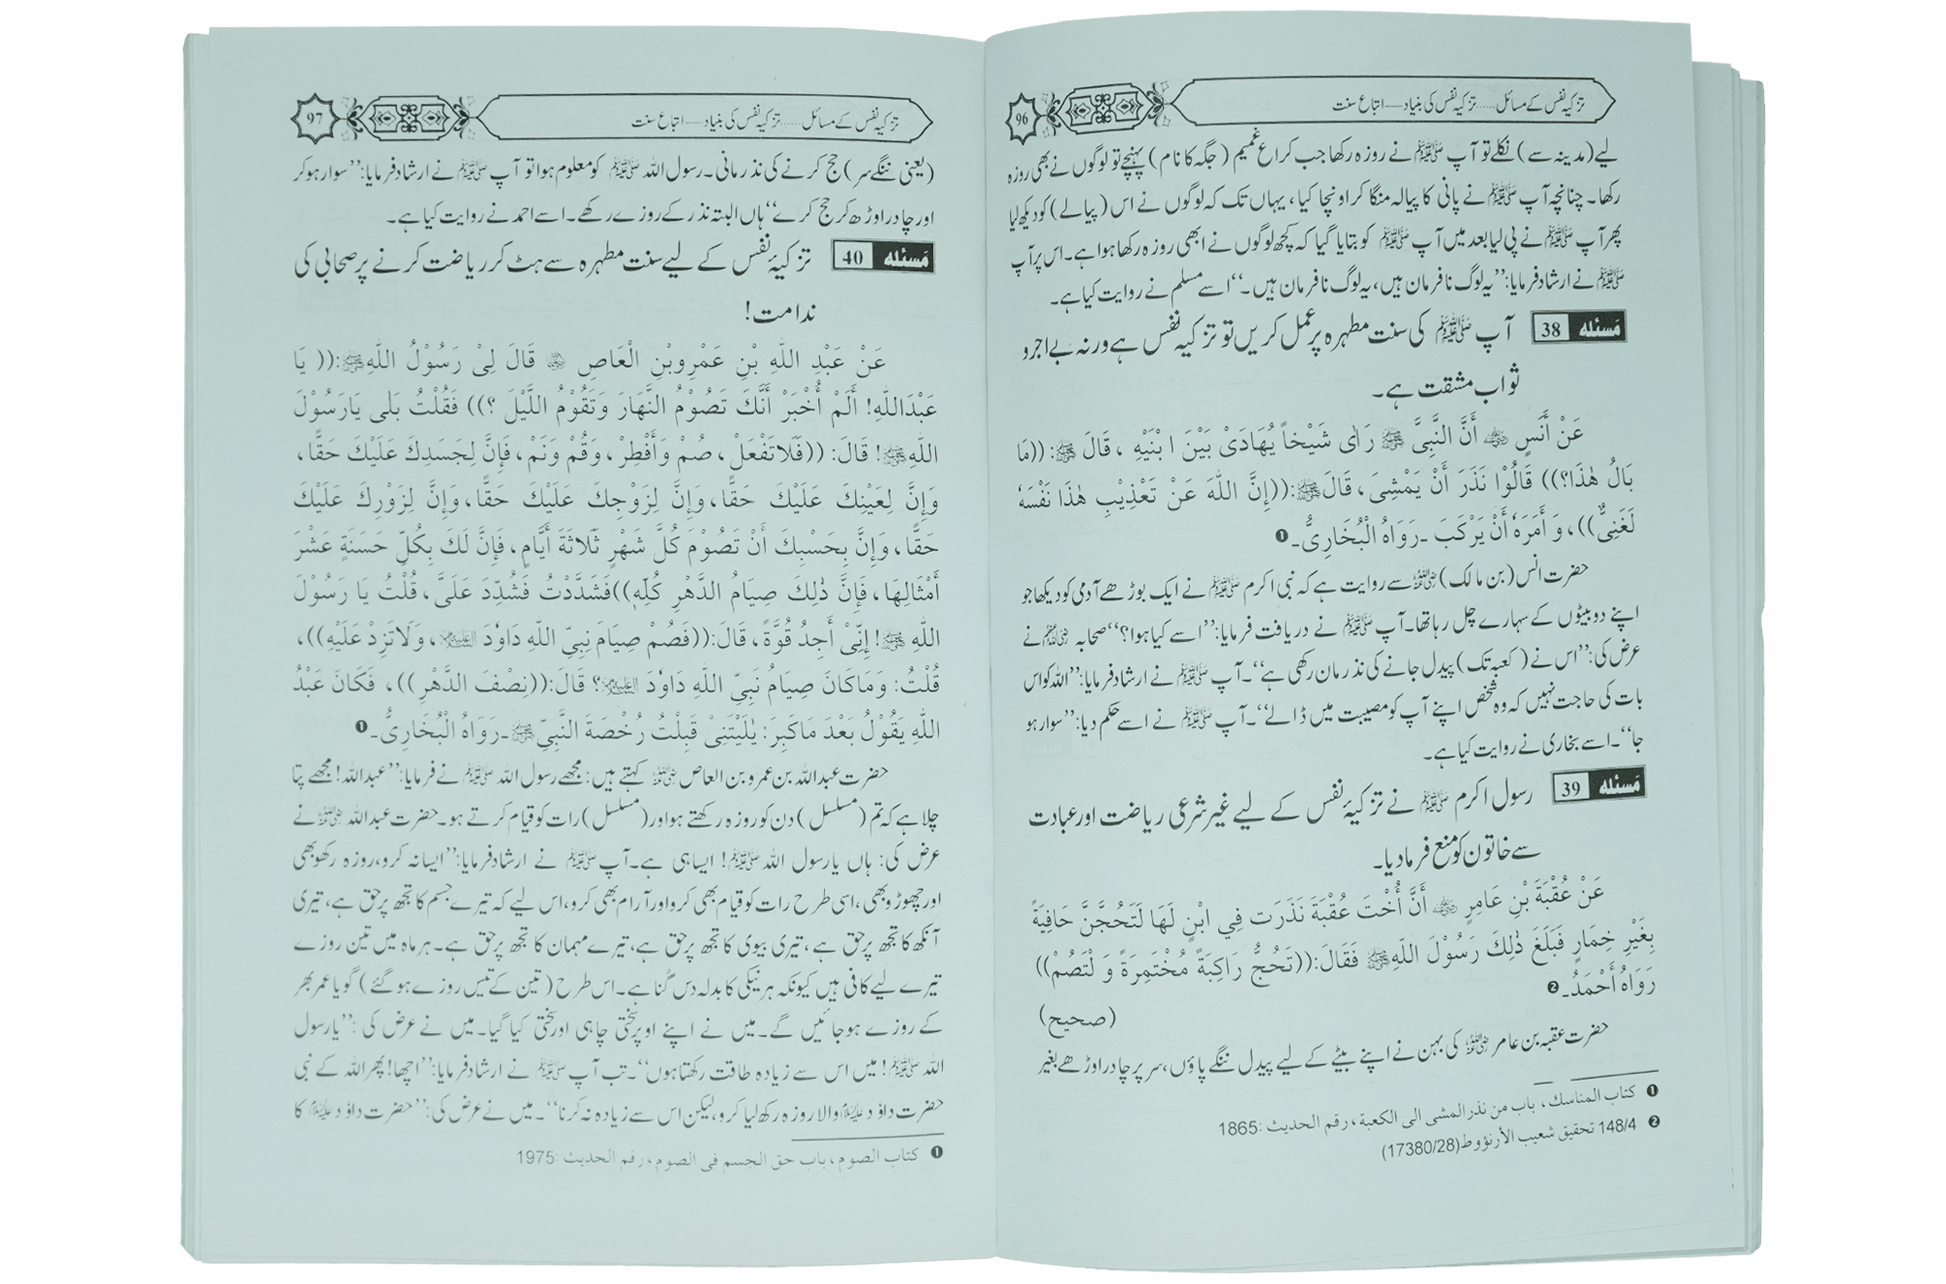 تزکیہ نفس کے مسائل.....تزکیہ نفس کی بنیاد—اتباع سنت
96
لیے (مدینہ سے) نکلے تو آپ ﷺ نے روزہ رکھا جب کراع غمیم (جگہ کا نام) پہنچے تو لوگوں نے بھی روزہ
رکھا۔ چنانچہ آپ ﷺ نے پانی کا پیالہ منگا کر اونچا کیا، یہاں تک کہ لوگوں نے اس (پیالے) کو دیکھ لیا
پھر آپ ﷺ نے پی لیا بعد میں آپ ﷺ کو بتایا گیا کہ کچھ لوگوں نے ابھی روزہ رکھا ہوا ہے۔ اس پر آپ
ﷺ نے ارشاد فرمایا: ’’یہ لوگ نافرمان ہیں، یہ لوگ نافرمان ہیں۔‘‘ اسے مسلم نے روایت کیا ہے۔
مَسئله 38 آپ ﷺ کی سنت مطہرہ پر عمل کریں تو تزکیہ نفس ہے ورنہ بے اجر و
ثواب مشقت ہے۔
عَنْ أَنَسٍ ؓ أَنَّ النَّبِیَّ ﷺ رَاٰی شَیْخاً یُهَادَیٰ بَیْنَ ابْنَیْهِ ، قَالَ ﷺ: ((مَا
بَالُ هٰذَا؟)) قَالُوْا نَذَرَ أَنْ یَمْشِیَ ، قَالَ ﷺ:((إِنَّ اللّٰهَ عَنْ تَعْذِیْبِ هٰذَا نَفْسَهٗ
لَغَنِیٌّ))، وَ أَمَرَهٗ أَنْ یَرْکَبَ ۔رَوَاهُ الْبُخَارِیُّ۔❶
حضرت انس (بن مالک) ؓ سے روایت ہے کہ نبی اکرم ﷺ نے ایک بوڑھے آدمی کو دیکھا جو
اپنے دو بیٹوں کے سہارے چل رہا تھا۔ آپ ﷺ نے دریافت فرمایا: ’’اسے کیا ہوا؟‘‘ صحابہ ؓ نے
عرض کی: ’’اس نے (کعبہ تک) پیدل جانے کی نذر مان رکھی ہے‘‘۔ آپ ﷺ نے ارشاد فرمایا: ’’اللہ کو اس
بات کی حاجت نہیں کہ وہ شخص اپنے آپ کو مصیبت میں ڈالے‘‘۔ آپ ﷺ نے اسے حکم دیا: ’’سوار ہو
جا‘‘۔ اسے بخاری نے روایت کیا ہے۔
مَسئله 39 رسول اکرم ﷺ نے تزکیۂ نفس کے لیے غیر شرعی ریاضت اور عبادت
سے خاتون کو منع فرما دیا۔
عَنْ عُقْبَةَ بْنِ عَامِرٍ ؓ أَنَّ أُخْتَ عُقْبَةَ نَذَرَت فِي ابْنٍ لَهَا لَتَحُجَّنَّ حَافِیَةً
بِغَیْرِ خِمَارٍ فَبَلَغَ ذٰلِكَ رَسُوْلَ اللّٰهِ ﷺ فَقَالَ:((تَحُجُّ رَاکِبَةً مُخْتَمِرَةً وَ لْتَصُمْ))
رَوَاهُ أَحْمَدُ۔❷
(صحیح)
حضرت عقبہ بن عامر ؓ کی بہن نے اپنے بیٹے کے لیے پیدل ننگے پاؤں، سر پر چادر اوڑھے بغیر
❶ کتاب المناسك، باب من نذر المشی الی الکعبة ، رقم الحدیث :1865
❷ 148/4 تحقیق شعیب الأرنؤوط(17380/28)
تزکیہ نفس کے مسائل.....تزکیہ نفس کی بنیاد—اتباع سنت
97
(یعنی ننگے سر) حج کرنے کی نذر مانی۔ رسول اللہ ﷺ کو معلوم ہوا تو آپ ﷺ نے ارشاد فرمایا: ’’سوار ہو کر
اور چادر اوڑھ کر حج کرے‘‘ ہاں البتہ نذر کے روزے رکھے۔ اسے احمد نے روایت کیا ہے۔
مَسئله 40 تزکیۂ نفس کے لیے سنت مطہرہ سے ہٹ کر ریاضت کرنے پر صحابی کی
ندامت!
عَنْ عَبْدِ اللّٰهِ بْنِ عَمْرِوبْنِ الْعَاصِ ؓ قَالَ لِیْ رَسُوْلُ اللّٰهِ ﷺ:(( یَا
عَبْدَاللّٰهِ! أَلَمْ أُخْبَرْ أَنَّكَ تَصُوْمُ النَّهَارَ وَتَقُوْمُ اللَّیْلَ ؟)) فَقُلْتُ بَلٰی یَارَسُوْلَ
اللّٰهِ ﷺ! قَالَ: ((فَلَاتَفْعَلْ، صُمْ وَأَفْطِرْ، وَقُمْ وَنَمْ، فَإِنَّ لِجَسَدِكَ عَلَیْكَ حَقًّا،
وَإِنَّ لِعَیْنِكَ عَلَیْكَ حَقًّا،وَإِنَّ لِزَوْجِكَ عَلَیْكَ حَقًّا،وَإِنَّ لِزَوْرِكَ عَلَیْكَ
حَقًّا، وَإِنَّ بِحَسْبِكَ أَنْ تَصُوْمَ کُلَّ شَهْرٍ ثَلَاثَةَ أَیَّامٍ، فَإِنَّ لَكَ بِکُلِّ حَسَنَةٍ عَشْرَ
أَمْثَالِهَا، فَإِنَّ ذٰلِكَ صِیَامُ الدَّهْرِ کُلِّهٖ))فَشَدَّدْتُ فَشُدِّدَ عَلَیَّ، قُلْتُ یَا رَسُوْلَ
اللّٰهِ ﷺ! إِنِّیْ أَجِدُ قُوَّةً، قَالَ:((فَصُمْ صِیَامَ نَبِیِّ اللّٰهِ دَاوٗدَ ؑ، وَلَاتَزِدْ عَلَیْهِ))،
قُلْتُ: وَمَاکَانَ صِیَامُ نَبِیِّ اللّٰهِ دَاوٗدَ ؑ؟ قَالَ:((نِصْفَ الدَّهْرِ))، فَکَانَ عَبْدُ
اللّٰهِ یَقُوْلُ بَعْدَ مَاکَبِرَ: یٰلَیْتَنِیْ قَبِلْتُ رُخْصَةَ النَّبِیِّ ﷺ۔رَوَاهُ الْبُخَارِیُّ۔❶
حضرت عبداللہ بن عمرو بن العاص ؓ کہتے ہیں: مجھے رسول اللہ ﷺ نے فرمایا: ’’عبداللہ! مجھے پتا
چلا ہے کہ تم (مسلسل) دن کو روزہ رکھتے ہو اور (مسلسل) رات کو قیام کرتے ہو۔ حضرت عبداللہ ؓ نے
عرض کی: ہاں یا رسول اللہ ﷺ! ایسا ہی ہے۔ آپ ﷺ نے ارشاد فرمایا: ’’ایسا نہ کرو، روزہ رکھو بھی
اور چھوڑو بھی، اسی طرح رات کو قیام بھی کرو اور آرام بھی کرو، اس لیے کہ تیرے جسم کا تجھ پر حق ہے، تیری
آنکھ کا تجھ پر حق ہے، تیری بیوی کا تجھ پر حق ہے، تیرے مہمان کا تجھ پر حق ہے۔ ہر ماہ میں تین روزے
تیرے لیے کافی ہیں کیونکہ ہر نیکی کا بدلہ دس گنا ہے۔ اس طرح (تین کے تیس روزے ہو گئے) گویا عمر بھر
کے روزے ہو جائیں گے۔ میں نے اپنے اوپر سختی چاہی اور سختی کیا گیا۔ میں نے عرض کی: ’’یا رسول
اللہ ﷺ! میں اس سے زیادہ طاقت رکھتا ہوں‘‘۔ تب آپ ﷺ نے ارشاد فرمایا: ’’اچھا! پھر اللہ کے نبی
حضرت داؤد ؑ والا روزہ رکھ لیا کرو، لیکن اس سے زیادہ نہ کرنا‘‘۔ میں نے عرض کی: ’’حضرت داؤد ؑ کا
❶ کتاب الصوم ، باب حق الجسم فی الصوم ، رقم الحدیث :1975